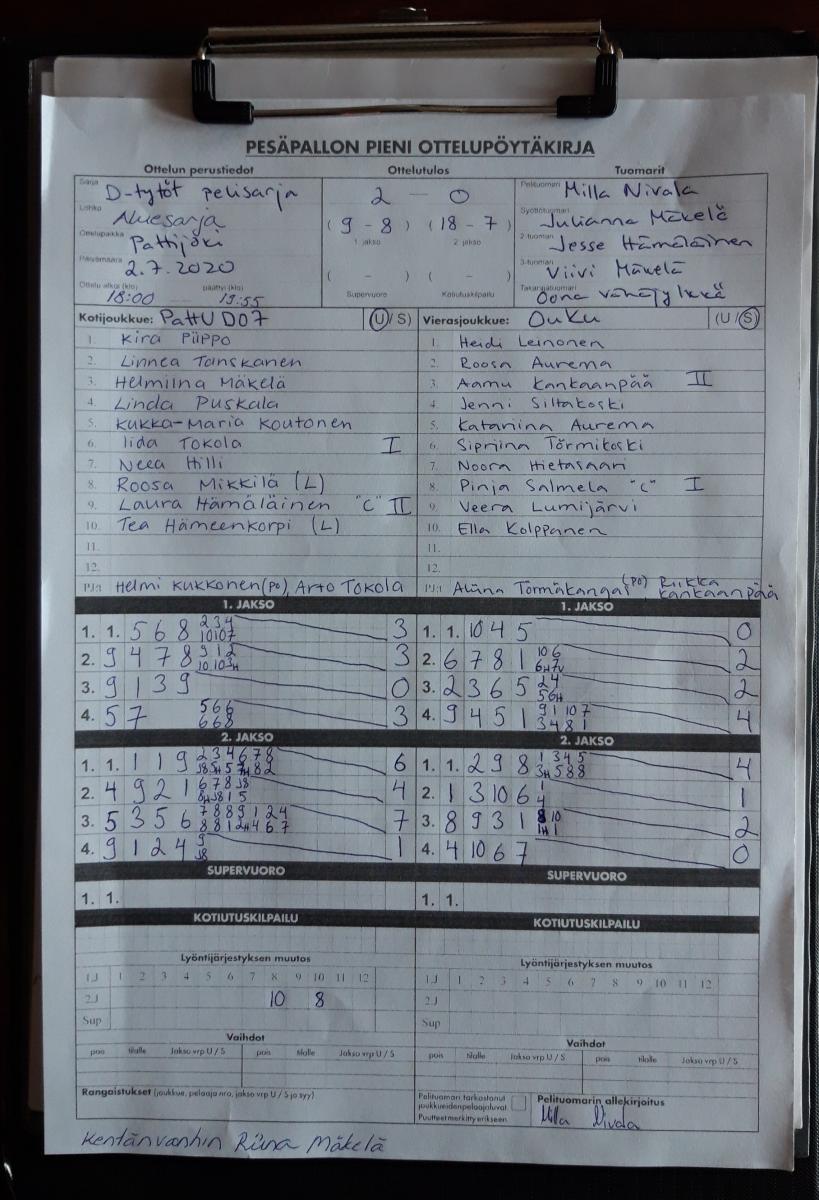 PESÄPALLON PIENI OTTELUPÖYTÄKIRJA
Ottelun perustiedot Ottelutulos Tuomarit
Sarja D-tytöt pelisarja 2 - 0 Pelituomari Milla Nivala
Lohko Aluesarja (9 - 8) (18 - 7) Syöttötuomari Julianna Mäkelä
Ottelupaikka Pattijoki 1. jakso 2. jakso 2-tuomari Jesse Hämäläinen
Päivämäärä 2.7.2020 ( - ) ( - ) 3-tuomari Viivi Mäkelä
Ottelu alkoi (klo) 18:00 päättyi (klo) 19:55 Supervuoro Kotiutuskilpailu Takarajatuomari Oona Vähäjylkkä
Kotijoukkue: PattU D07 (U/S) Vierasjoukkue: OuKu (U/S)
1. Kira Piippo 1. Heidi Leinonen
2. Linnea Tanskanen 2. Roosa Aurema
3. Helmiina Mäkelä 3. Aamu Kankaanpää II
4. Linda Puskala 4. Jenni Siltakoski
5. Kukka-Maria Koutonen 5. Katariina Aurema
6. Iida Tokola I 6. Sipriina Törmikoski
7. Neea Hilli 7. Noora Hietasaari
8. Roosa Mikkilä (L) 8. Pinja Salmela "C" I
9. Laura Hämäläinen "C" II 9. Veera Lumijärvi
10. Tea Hämeenkorpi (L) 10. Ella Kolppanen
11. 11.
12. 12.
PJ:t Helmi Kukkonen (po), Arto Tokola PJ:t Aliina Törmäkangas (po) Riikka Kankaanpää
1. JAKSO 1. JAKSO
1. 1. 5 6 8 2 3 4 10 10 7 3 1. 1. 10 4 5 0
2. 9 4 7 8 9 1 2 10 10 3H 3 2. 6 7 8 1 10 6 6H 7V 2
3. 9 1 3 9 0 3. 2 3 6 5 2 4 5 6H 2
4. 5 7 5 6 6 6 6 8 3 4. 9 4 5 1 9 1 10 7 3 4 8 1 4
2. JAKSO 2. JAKSO
1. 1. 1 1 9 2 3 4 6 7 8 J8 5H 5 7H 8 2 6 1. 1. 2 9 8 1 3 4 5 3H 5 8 8 4
2. 4 9 2 1 6 7 8 J8 8H J8 1 5 4 2. 1 3 10 6 1 4 1
3. 5 3 5 6 7 8 8 9 1 2 4 8 8 1 2H 4 6 7 7 3. 8 9 3 1 8 10 1H 1 2
4. 9 1 2 4 9 J8 1 4. 4 10 6 7 0
SUPERVUORO SUPERVUORO
1. 1. 1. 1.
KOTIUTUSKILPAILU KOTIUTUSKILPAILU
Lyöntijärjestyksen muutos Lyöntijärjestyksen muutos
1.J 1 2 3 4 5 6 7 8 9 10 11 12 1.J 1 2 3 4 5 6 7 8 9 10 11 12
2.J 10 8 2.J
Sup Sup
Vaihdot Vaihdot
pois tilalle Jakso vrp U / S pois tilalle Jakso vrp U / S pois tilalle Jakso vrp U / S pois tilalle Jakso vrp U / S
Rangaistukset (joukkue, pelaaja nro, jakso vrp U / S ja syy) Pelituomari tarkastanut joukkueiden pelaajaluvat Puutteet merkitty erikseen Pelituomarin allekirjoitus
Milla Nivala
Kentänvanhin Riina Mäkelä